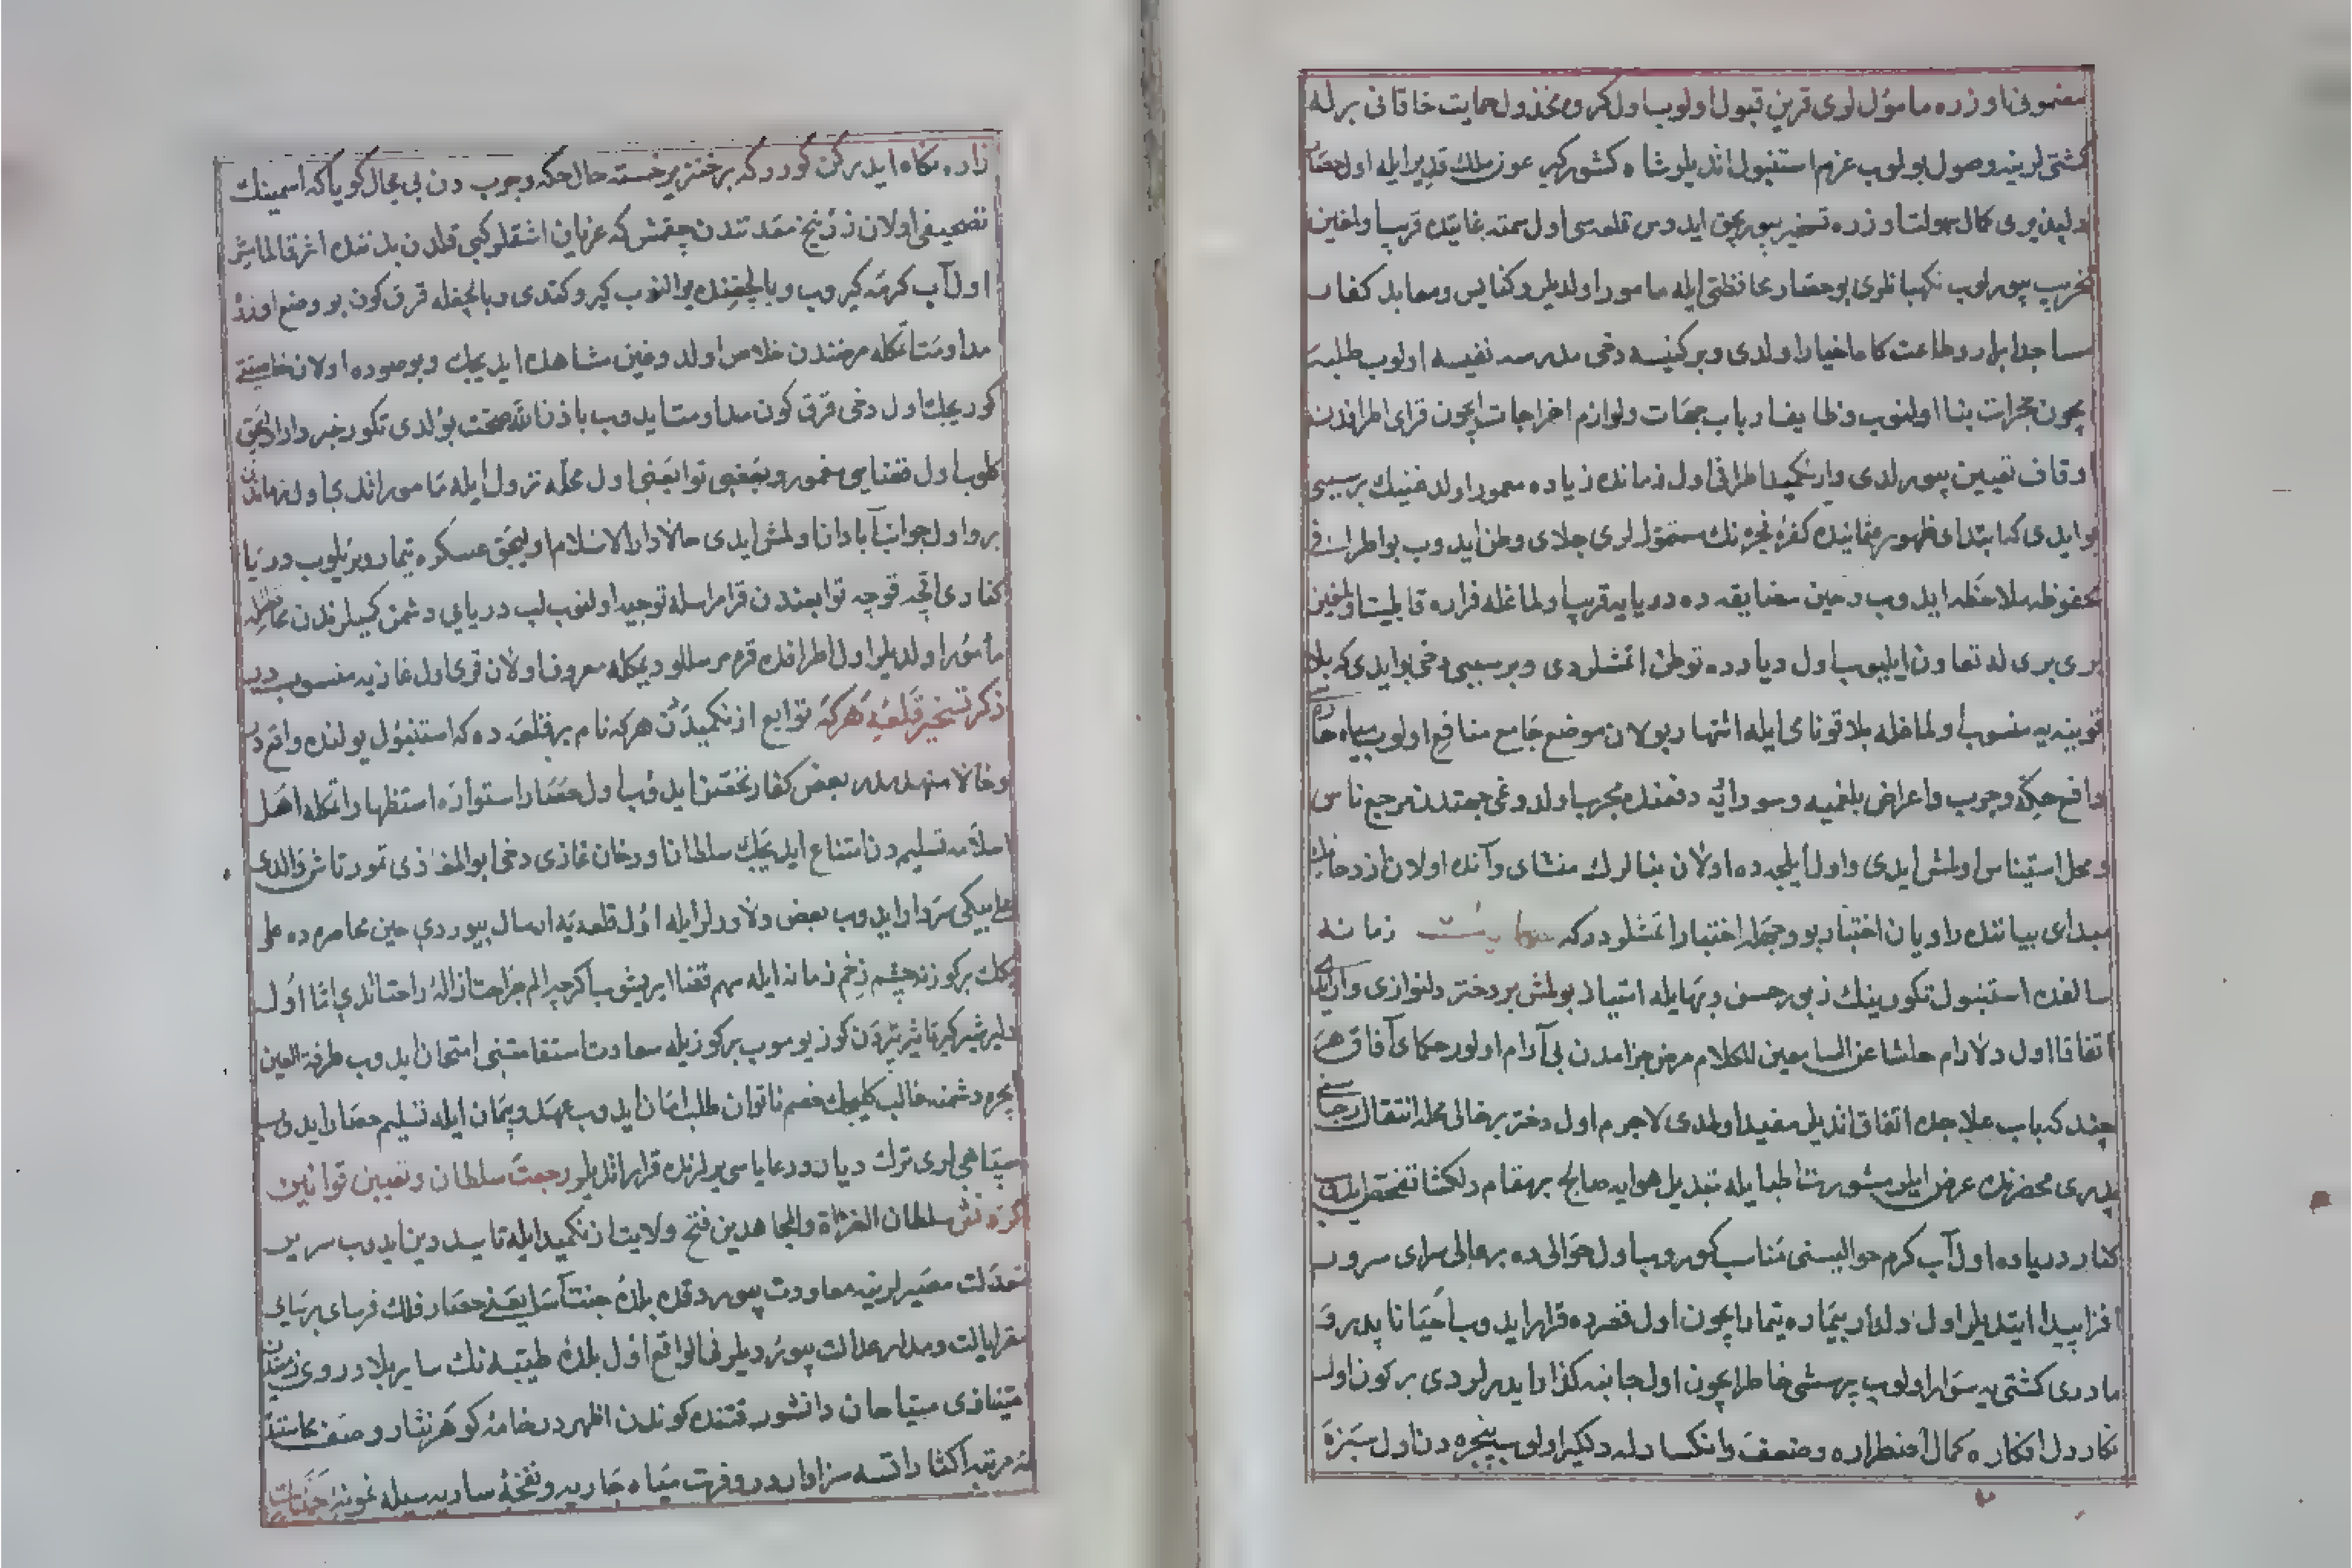 مضمونی اوزره مامؤل لری قرین قبول اولوب اول کروه مخذول حمایت خاقانی برله
کشتی لرینه وصول بولوب عزم استنبول اتدیلر شاه کشورکیر عون ملك قدیر ایله اول حصار
دلپذیری کمال سهولت اوزره تسخیر بیوریجق ایدوس قلعه سی اول سمته غایتده قریب اولمغین
تخریب بیوریلوب نکهبانلری بو حصار محافظتی ایله مامور اولدیلر وکنایس ومعابد کفار
مساجد ابرار وطاعت کاه اخیار اولدی وبر کنیسه دخی مدرسه نفیسه اولوب طلبه
ایچون حجرات بنا اولنوب وظایف ارباب جهات ولوازم اخراجات ایچون قرای اطرافدن
اوقاف تعیین بیورلدی وازنکمید اطرافی اول زمانده زیاده معمور اولدغینك بر سببی
بو ایدی که ابتدای ظهور عثمانیده کفره فجره نك متمول لری جلای وطن ایدوب بو اطرافی
محفوظ ملاحظه ایدوب وحین مضایقه ده دریایه قریب اولماغله فراره قابلیت اولمغین
بری بری له تعاون ایلیوب اول دیارده توطن اتمشلردی وبر سببی دخی بو ایدی که یلاق
قوینه یه منسوب اولماغله یلاق اونای ایله اشتهار بولان موضع جامع منافع اولوب میاه حاره سی
دافع حکه وجرب واعراض بلغمیه وسودائیه دفعنده مجرب اولدوغی جهتدن مرجع ناس
ومحل استیناس اولمش ایدی واول ایلیجه ده اولان بنالرك منشای وآنده اولان ازدحامك
مبدای بیاننده راویان اخبار بو وجهله اختیار اتمشلردرکه زمانه
سالفده استنبول تکورینك زیور حسن وبها ایله امتیاز بولمش بر دختر دلنوازی وار ایدی
اتفاقا اول دلارام حاشا عن السامعین للکلام مرض جزامدن بی آرام اولور حکمای آفاق هر
چند که باب علاجده اتفاق اتدیلر مفید اولمدی لاجرم اول دختر بر خالی محله انتقال رجاسنی
پدری محضرنده عرض ایلر مشورت اطبا ایله تبدیل هوایه صالح بر مقام دلکشا تفحص ایدوب
کنار دریاده اول آب کرم حوالیسنی مناسب کوروب اول حوالی ده بر عالی سرای سرور
افزا پیدا ایتدیلر اول دلدار بیماره تیمار ایچون اول قصرده قرار ایدوب احیانا پدر و
مادری کشتی یه سوار اولوب پرسشی خاطر ایچون اول جانبه کذار ایدرلردی بر کون اول
نکار دل افکار کمال اضطرار وضعف وانکسارله دلکیر اولوب پنجره دن اول سبزه
زاره نکاه ایدرکن کوردوکه بر خنزیر خسته حال حکه وجرب دن بی مجال کویا که اسمینك
تصحیفی اولان ننك معدتندن چقمش که عریان اشقلر کبی قلدن بدننده اثر قالمامش
اول آب کرمه کیروب وبالچغنده یوالنوب کیرو کتدی وبالجمله قرق کون بو وضع اوزره
مداومت اتمکله مرضندن خلاص اولدوغین مشاهده ایدیجك وبو صوده اولان خاصیتی
کوریجك اول دخی قرق کون مداومت ایدوب باذن الله صحت بولدی تکور خبردار اولیجق
کلوب اول فضنایی معمور وبعض توابعنی اول محله نزول ایله مامور اتدی اول زماندن
برو اول جوانب آبادان اولمش ایدی حالا دار الاسلام اولیجق عسکره تیمار ویریلوب دریا
کناری اقچه قوجه توابعندن قرا مرسله توجیه اولنوب لب دریای دشمن کمیلرندن محافظه یه
مأمور اولدیلر اول اطرافده قره مرسللو دیمکله معروف اولان قری اول غازیه منسوبدر
ذکر تسخیر قلعۀ هرکه توابع ازنکمیددن هرکه نام بر قلعه ده که استنبول یولنده واقعدر
وحالا منهدمدر بعض کفار تحصن ایدوب اول حصار استواره استظهار اتمکله اهل
اسلامه تسلیم دن امتناع ایدیجك سلطان اورخان غازی دخی ابو المغازی تمورتاش والدی
علی بیکی سردار ایدوب بعض دلاورلر ایله اول قلعه یه ارسال بیوردی حین محاصره ده علی
بیکك بر کوزنه چشم زخم زمانه ایله سهم قضا ایریشوب اکرچه الم جراحت ازالۀ راحت اتدی اما اول
دلیر شیرکیر تاثیر تیردن کوز یوموب بر کوزیله سعادت استقامتنی امتحان ایدوب طرفة العین
ایچره دشمنه غالب کلیجك خصم ناتوان طلب امان ایدوب عهد وپیمان ایله تسلیم حصار ایدوب
سپاهی لری ترك دیار ورعایاسی یرلرنده قرار اتدیلر رجعت سلطان وتعیین قوانین
کزه نش سلطان الغزاة والمجاهدین فتح ولایت ازنکمید ایله تایید دین ایدوب سریر
معدلت مصیرلرینه معاودت بیوردقده بلدۀ جنت آسا یعنی حصار فلك فرسای برسای
مقر ایالت ومدار عدالت بیوردیلر فی الواقع اول بلدۀ طیبه نك سایر بلاد روی زمیندن
امتیازی سیاحان دانشور قتنده کوندن اظهردر خامۀ کوهرنثار وصف محاسنده
نه مرتبه اکثار اتسه سزاواردر وفرت میاه جاریه ونفخۀ ساریه سیله نمونۀ جنات